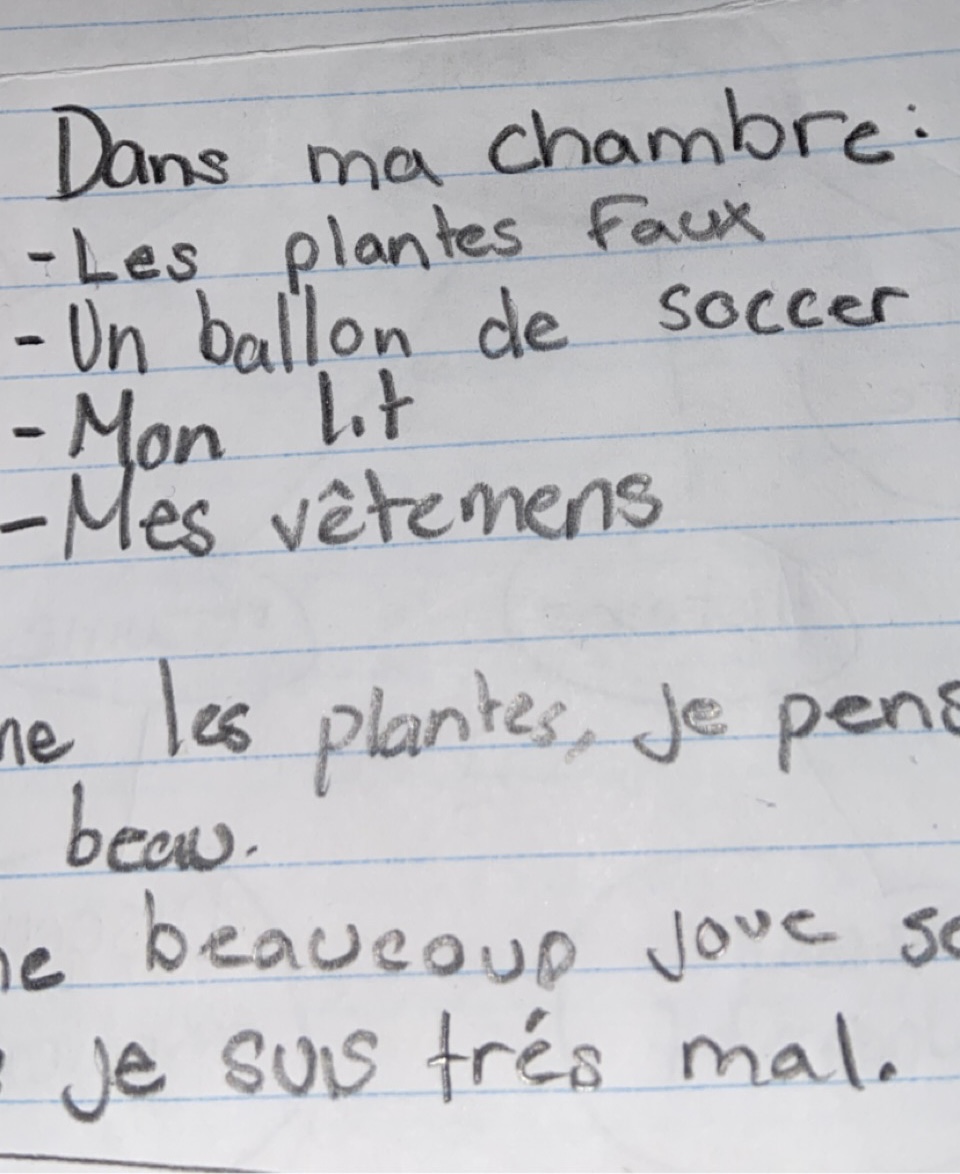 Dans ma chambre:
- Les plantes faux
- Un ballon de soccer
- Mon lit
- Mes vêtemens
me les plantes, je pens
beau.
beaucoup joue so
je suis trés mal.